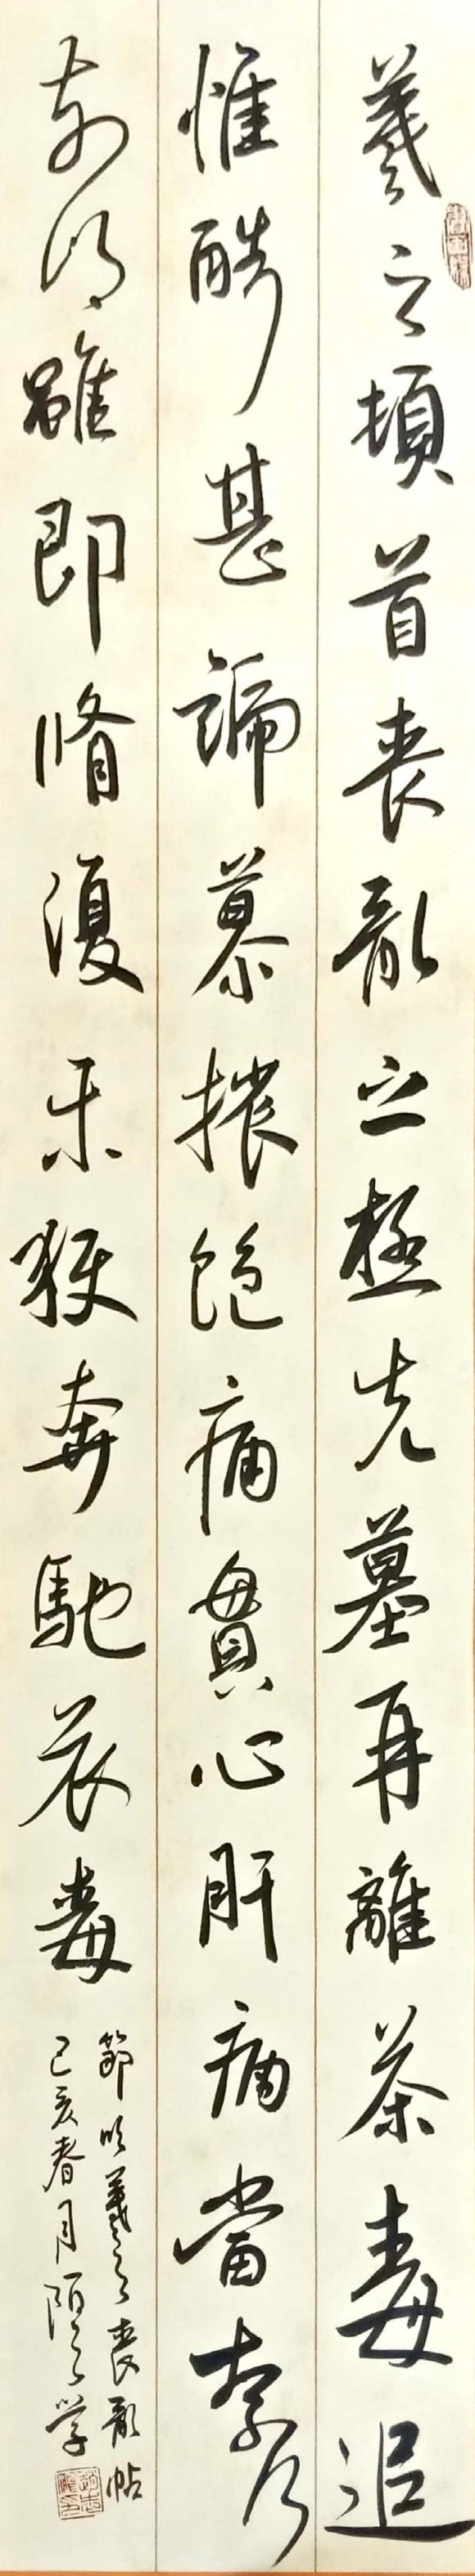 羲之頓首喪亂之極先墓再離荼毒追
惟酷甚號慕摧絕痛貫心肝痛當奈何
奈何雖即脩復未獲奔馳哀毒
節臨羲之喪亂帖
己亥春月